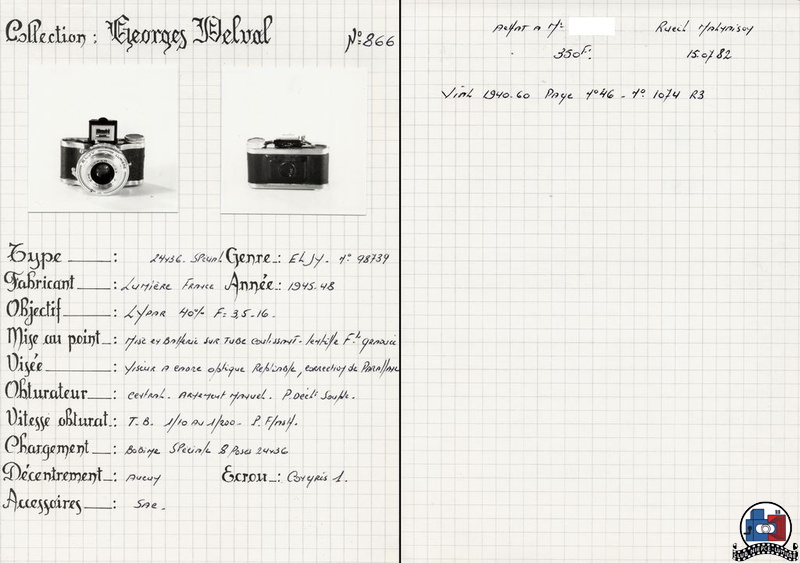 Collection : Georges Delval N° 866
Type : 24x36. Spécial Genre : ELJY. N° 98739
Fabricant : Lumière France Année : 1945-48
Objectif : LYPAR 40% F= 3,5-16.
Mise au point : Mise en Batterie sur Tube coulissant - lentille F.
Visée : Viseur a cadre optique Repliable, correction de Parallaxe
Obturateur : central. Armement Manuel. P. Décl. Souple.
Vitesse obturat : T. B. 1/10 au 1/200 - P. Flash.
Chargement : Bobine Spéciale 8 Poses 24x36
Décentrement : Aucun Ecrou : Congrès 1.
Accessoires : Sac.
Achat a Mr Rueil Malmaison
350F. 15.07.82
Vial 1940.60 Page N°46 - N° 1074 R3